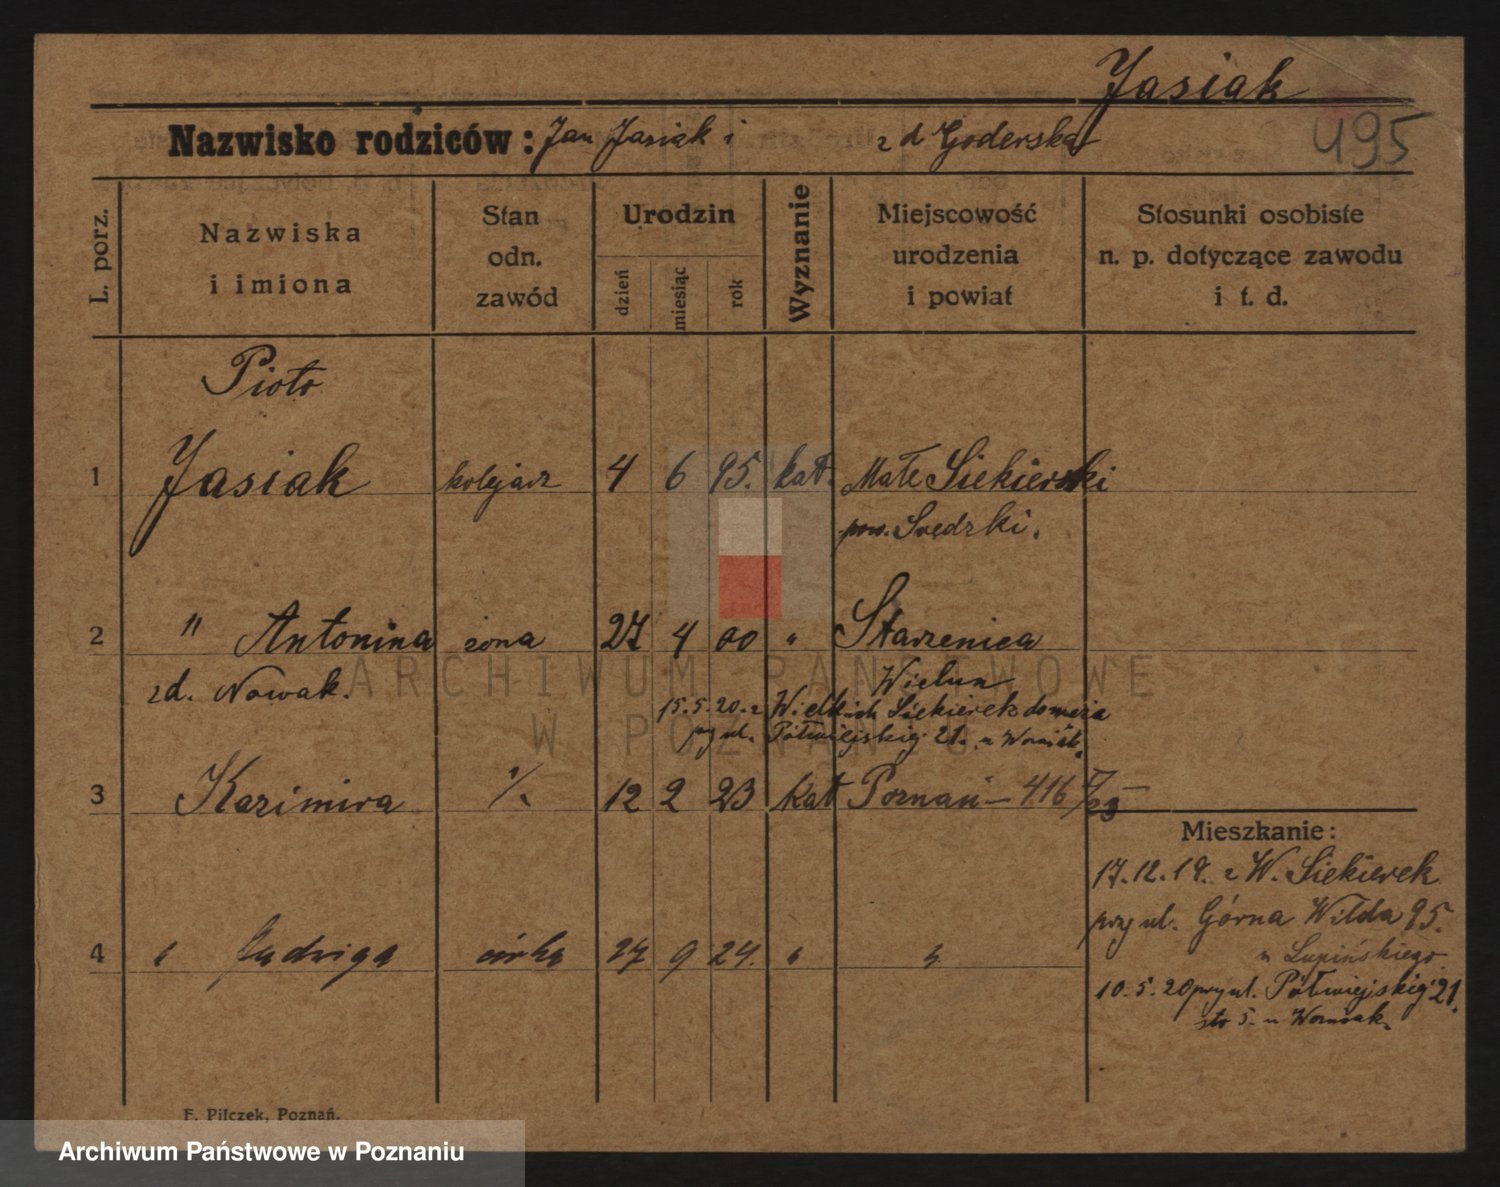 Jasiak
495
Nazwisko rodziców: Jan Jasiak i z d Goderska
L. porz.
Nazwiska i imiona
Stan odn. zawód
Urodzin
dzień
miesiąc
rok
Wyznanie
Miejscowość urodzenia i powiat
Stosunki osobiste n. p. dotyczące zawodu i t. d.
Piotr
1 Jasiak kolejarz 4 6 95. kat. Małe Siekierski
pow. Średzki.
2 " Antonina żona 27 4 00 " Starzenica
zd. Nowak. Wielun
15.5.20. z Wielkich Siekierek do męża
przy ul. Półwiejskiej 21. u Woźniak.
3 Kazimira 1/. 12 2 23 kat Poznań – 416 /23
Mieszkanie:
17.12.19. z W. Siekierek
przy ul. Górna Wilda 95.
u Lupińskiego
4 Jadwiga córka 27 9 24. "
10.5.20 przy ul. Półwiejskiej 21.
u Woźniak.
F. Pilczek, Poznań.
ARCHIWUM PAŃSTWOWE
W POZNANIU
Archiwum Państwowe w Poznaniu